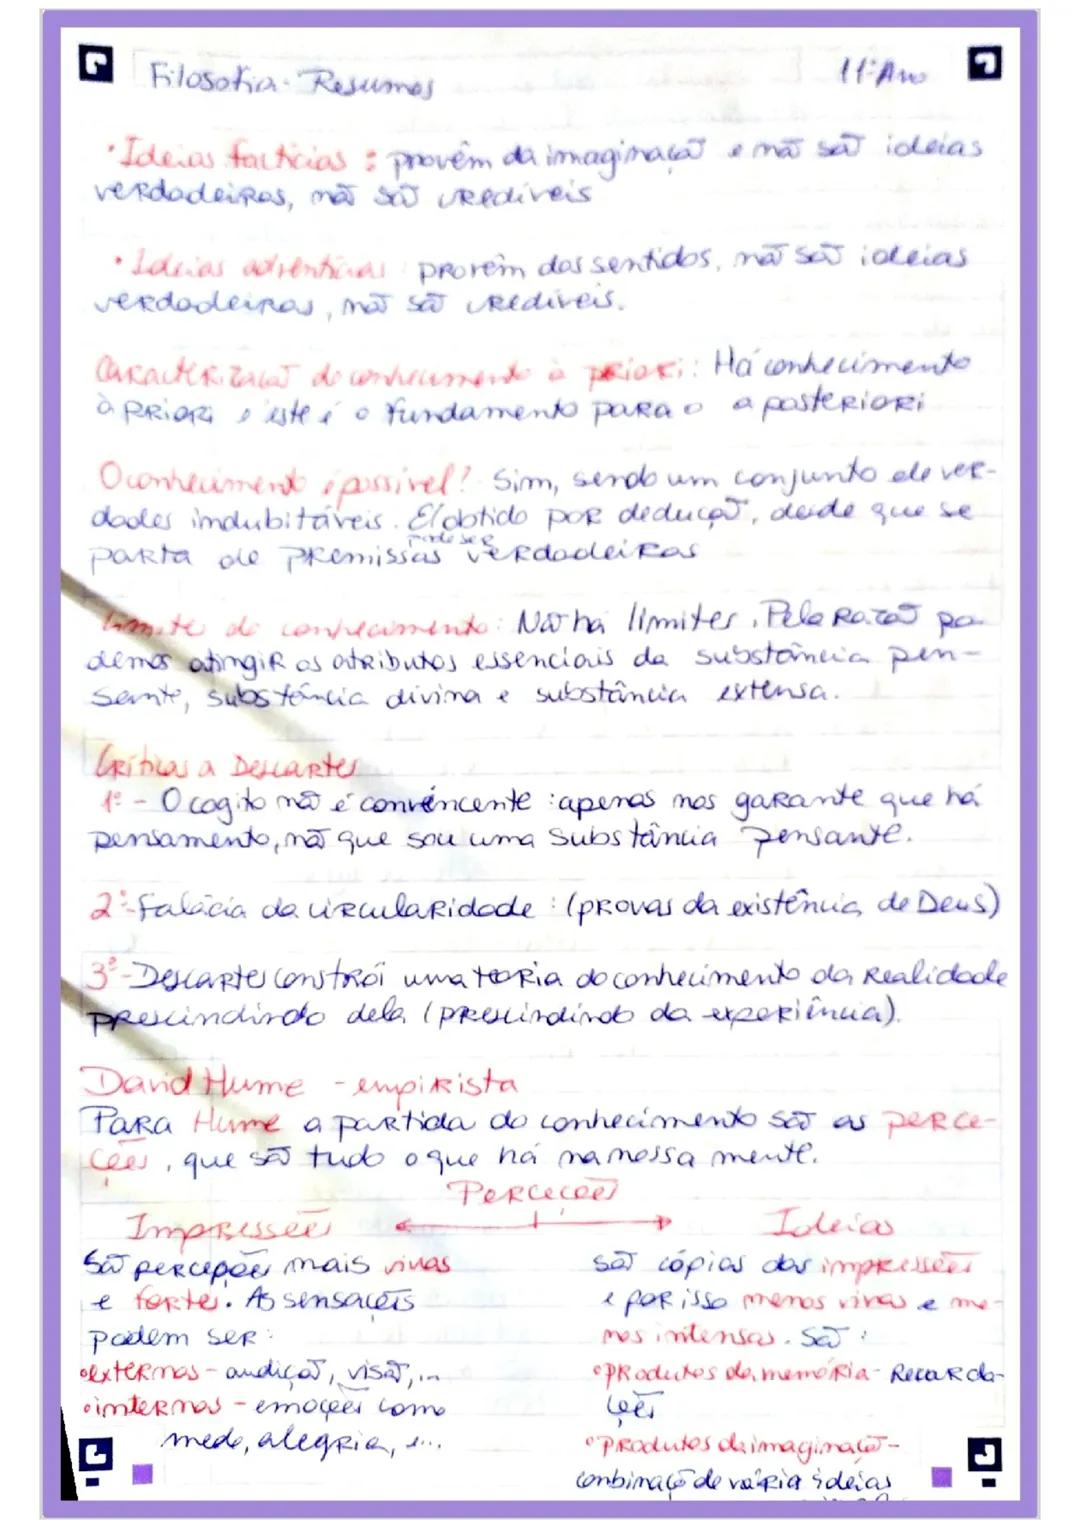 Filosofia - Resumos 11º Ano
• Ideias factícias : provêm da imaginação e não são ideias
verdadeiras, não são credíveis
• Ideias adventícias : provêm dos sentidos, não são ideias
verdadeiras, não são credíveis.
Caracterização do conhecimento à priori : Há conhecimento
à priori, e este é o fundamento para o a posteriori
O conhecimento é possível? Sim, sendo um conjunto de ver-
dades indubitáveis. E obtido por dedução, desde que se
pode ser
parta de premissas verdadeiras
Limite do conhecimento : Não há limites. Pela Razão po-
demos atingir os atributos essenciais da substância pen-
sante, substância divina e substância extensa.
Críticas a Descartes
1º - O cogito não é convencente : apenas nos garante que há
pensamento, não que sou uma substância pensante.
2º - Falácia da circularidade : (provas da existência de Deus)
3º - Descartes constrói uma teoria do conhecimento da Realidade
prescindindo dela (prescindindo da experiência).
David Hume - empirista
Para Hume a partida do conhecimento são as perce-
ções, que são tudo o que há na nossa mente.
Perceções
Impressões
São perceções mais vivas
e fortes. As sensações
podem ser :
• externas - audição, visão,...
• internas - emoções como
medo, alegria, ...
Ideias
são cópias das impressões
e por isso menos vivas e me-
nos intensas. São :
• produtos da memória - Recorda-
ções
• produtos da imaginação -
combinação de vária ideias